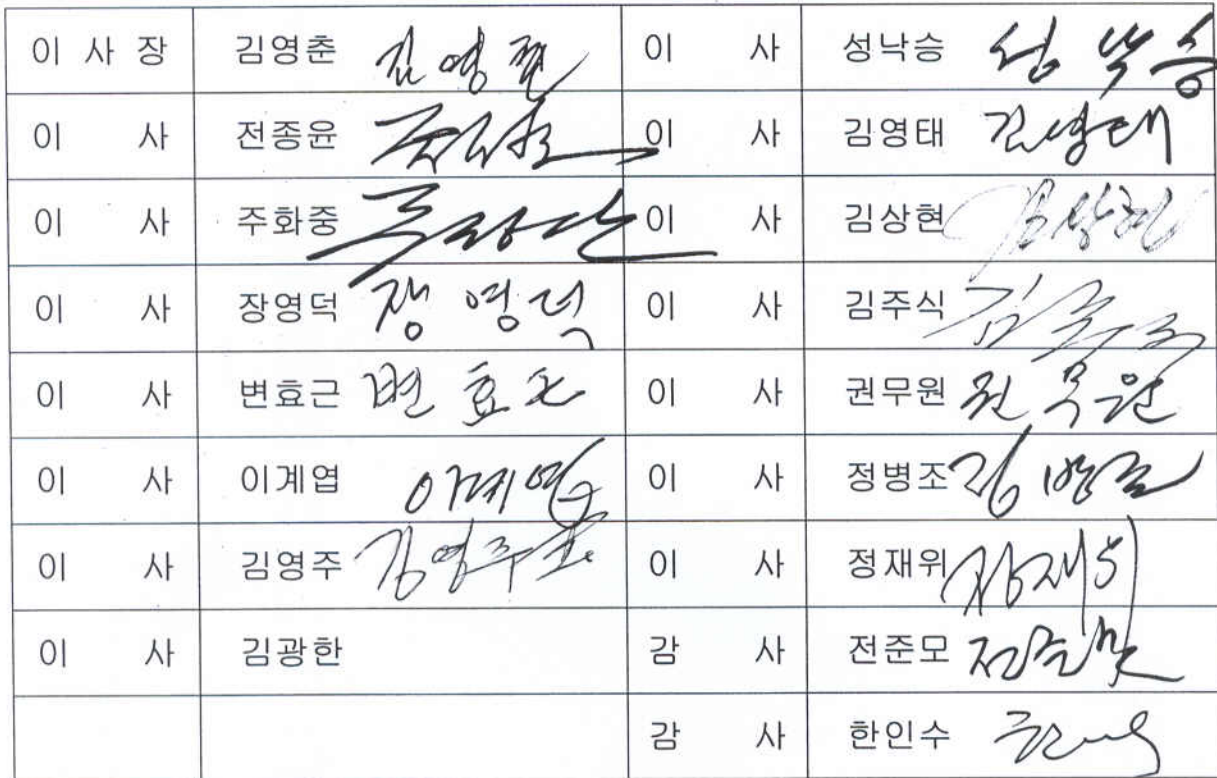 이 사 장 김영춘 김영춘 이 사 성낙승 성낙승
이 사 전종윤 이 사 김영태 김영태
이 사 주화중 이 사 김상현 김상현
이 사 장영덕 장영덕 이 사 김주식 김주식
이 사 변효근 변효근 이 사 권무원 권무원
이 사 이계엽 이계엽 이 사 정병조 정병조
이 사 김영주 김영주 이 사 정재위 정재위
이 사 김광한 감 사 전준모 전준모
감 사 한인수